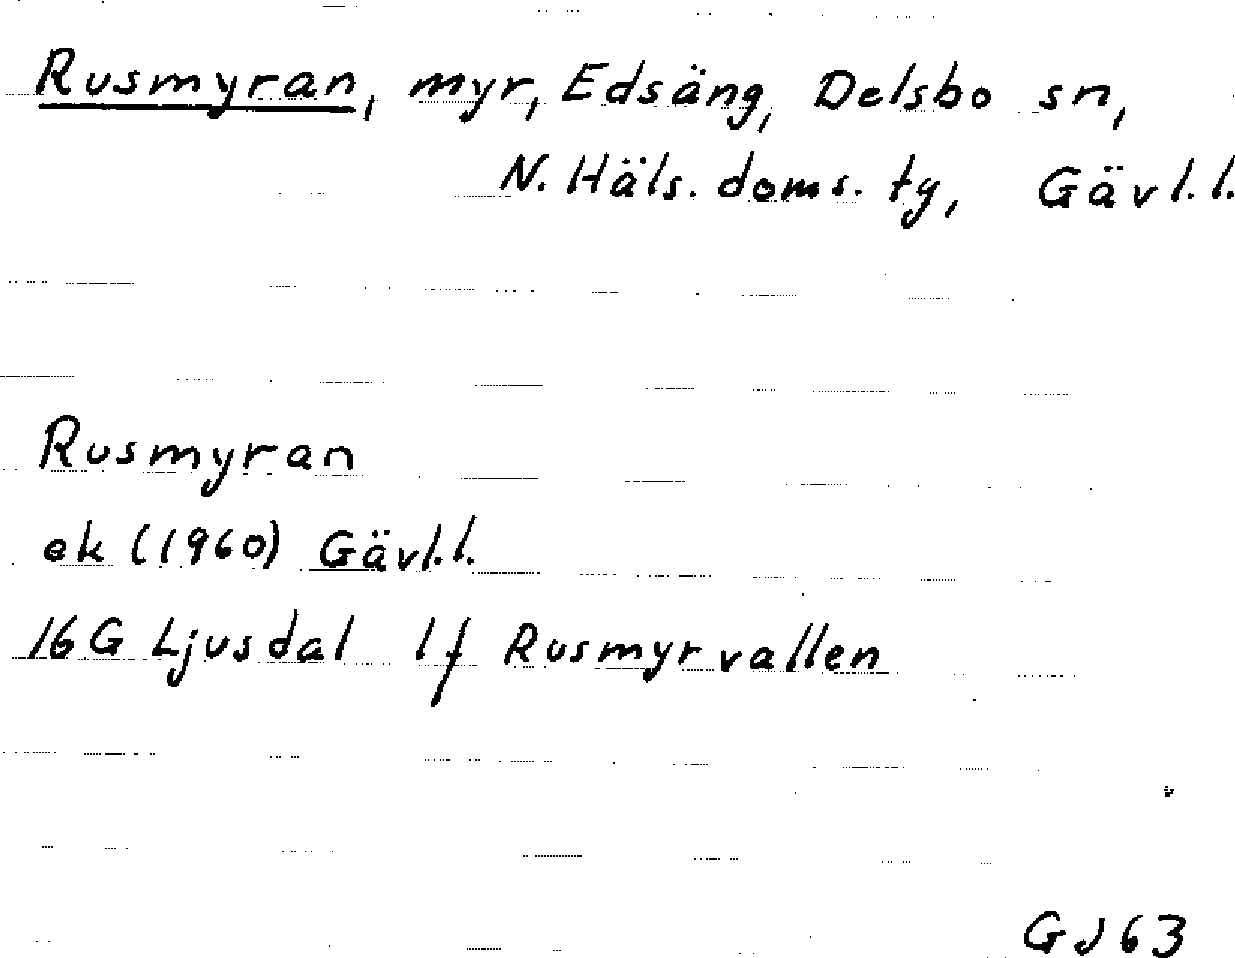 Rusmyran, myr, Edsäng, Delsbo sn,
N. Häls. doms. tg, Gävl. l.
Rusmyran
ek (1960) Gävl. l.
16G Ljusdal lf Rusmyrvallen
GJ 63